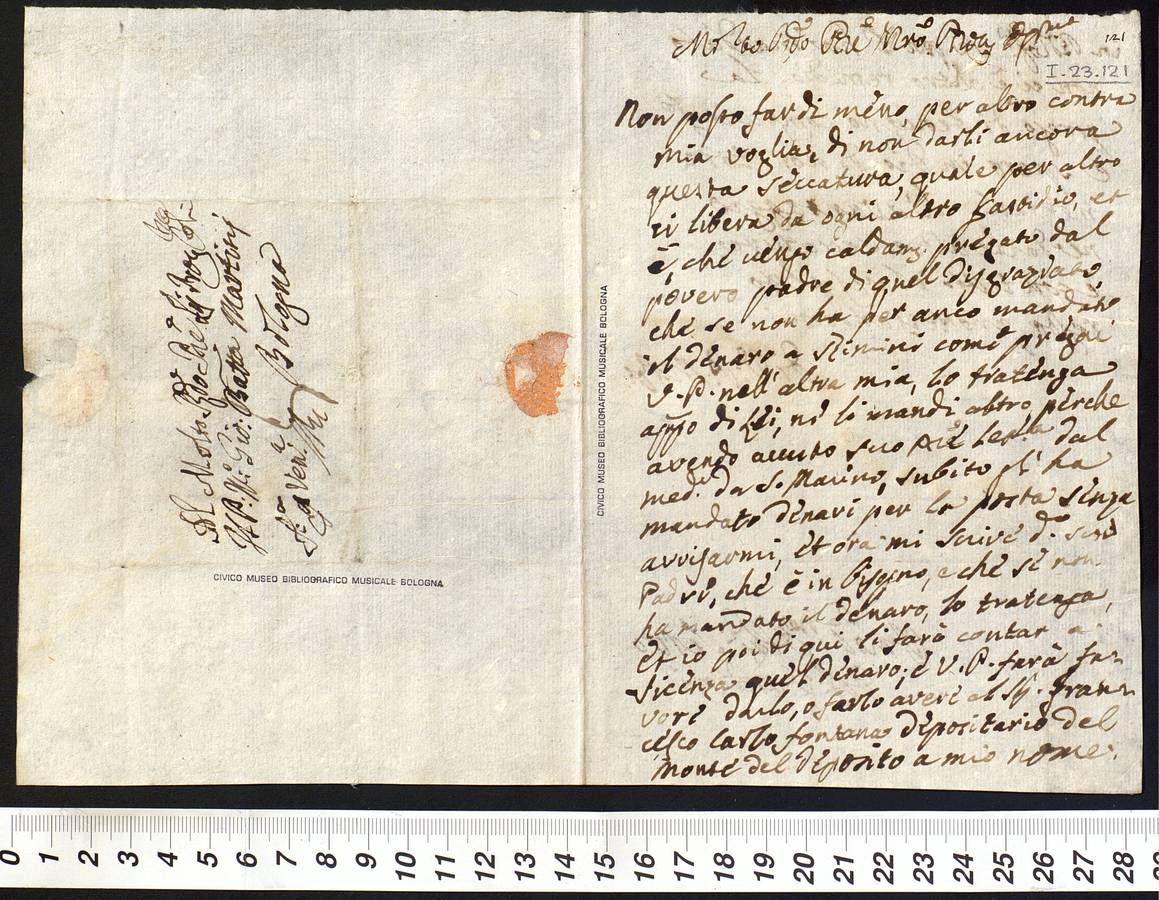 Al Molto Rdo
Il P. M. Gio: Batta Martini
Bologna
CIVICO MUSEO BIBLIOGRAFICO MUSICALE BOLOGNA
CIVICO MUSEO BIBLIOGRAFICO MUSICALE BOLOGNA
121
I-23.121
Non posso far di meno, per altro contra
mia voglia, di non darli ancora
questa seccatura, quale per altro
li libera da ogni altro fastidio, et
è, che vengo caldam. pregato dal
povero padre di quel disgraziato
che se non ha per anco mandato
il denaro a Rimini come pregai
V. P. nell'altra mia, lo tratenga
appo di Lei, nè li mandi altro, perche
avendo avuto suo Pre dal
med. da S. Marino, subito gl'ha
mandato denari per la posta senza
avvisarmi, et ora mi scrive do
Padre, che è in bisogno, e che se non
ha mandato il denaro, lo tratenga,
et io poi di qui li farò contar a
Sicenza quel denaro; e V. P. farà fa-
vore darlo, o farlo avere al Sig. Fran-
cesco Carlo Fontana depositario del
Monte del deposito a mio nome.